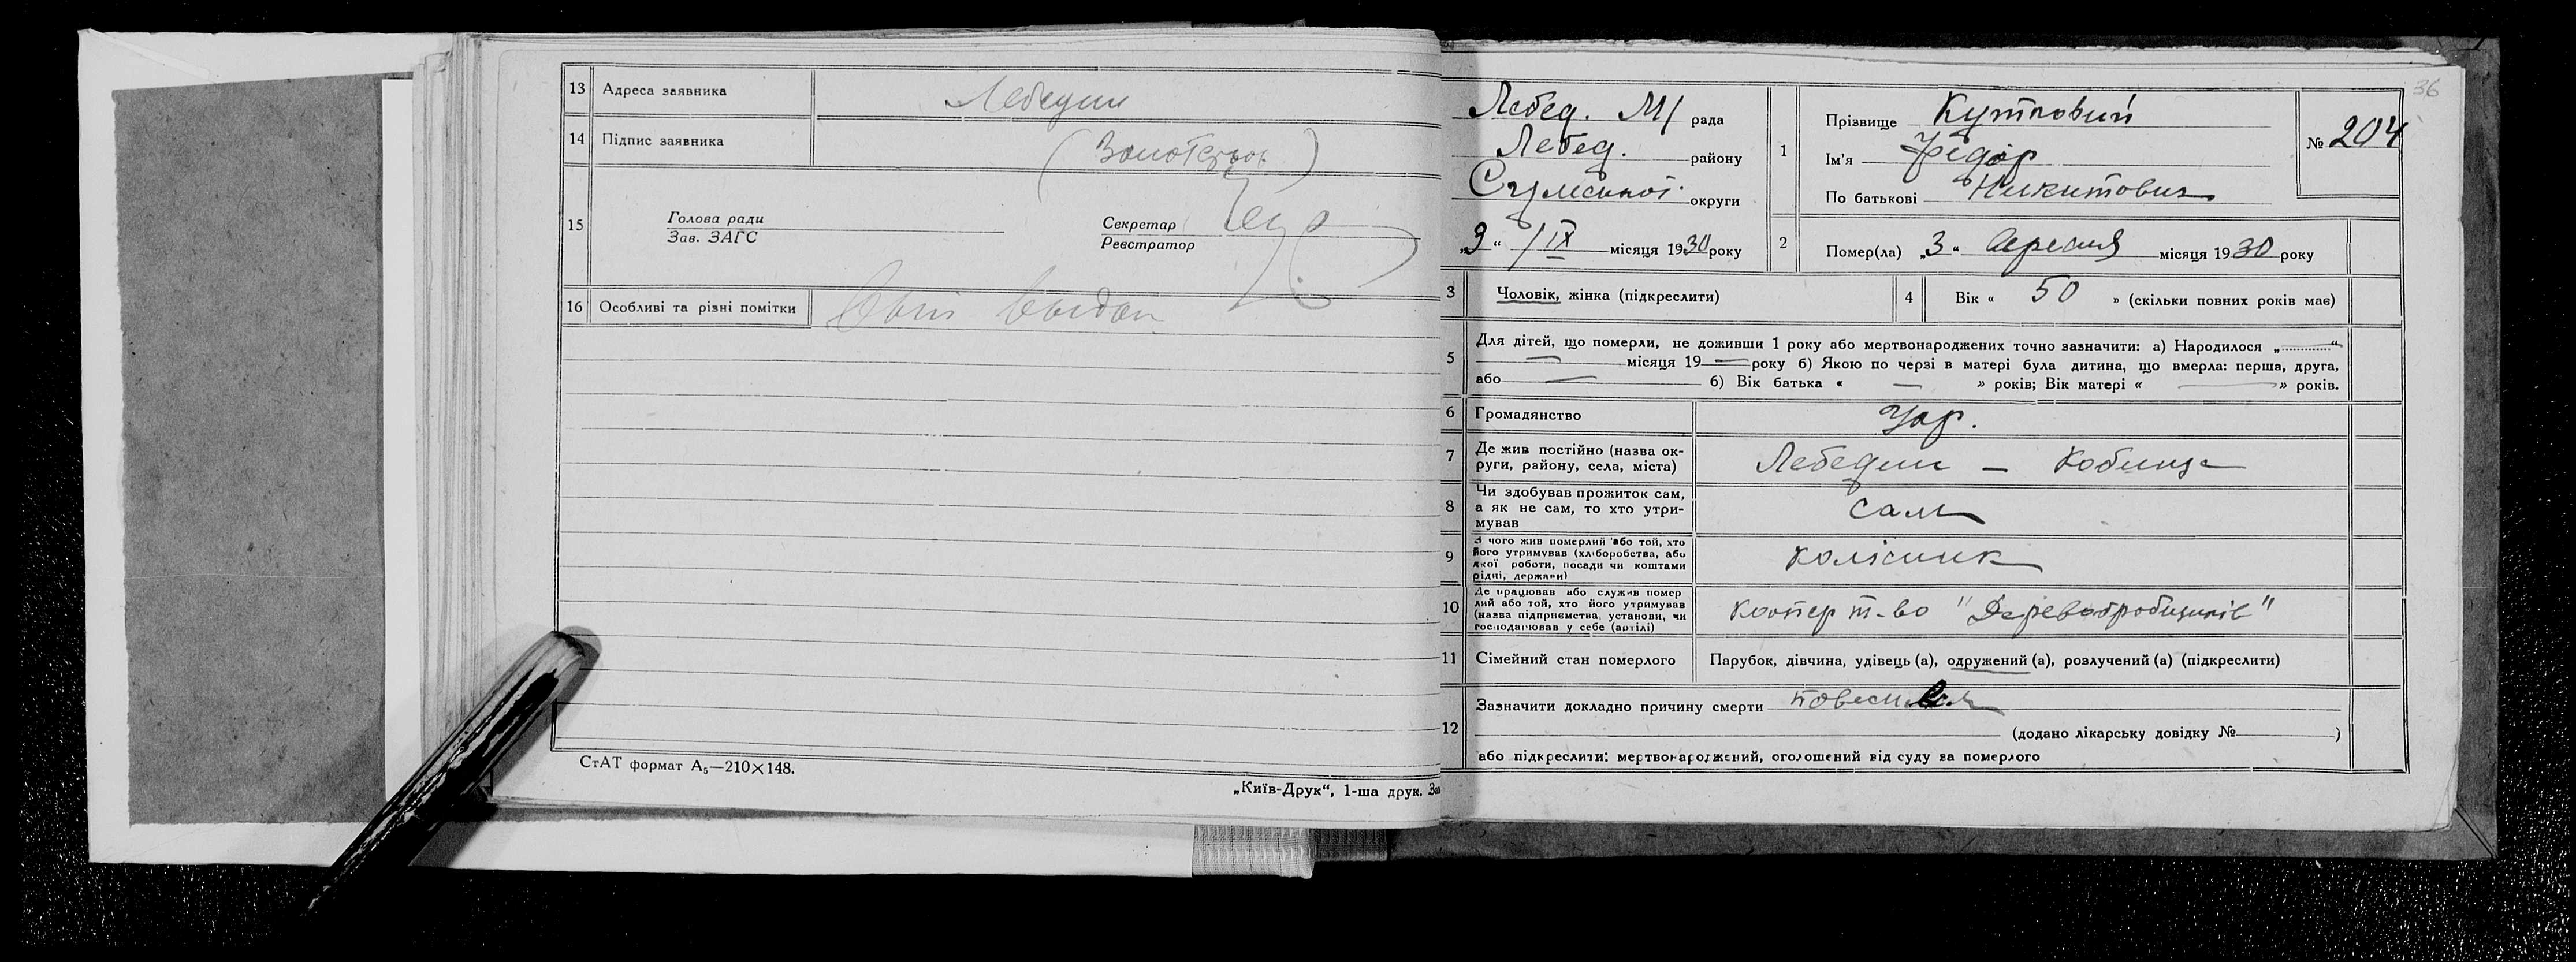 13 Адреса заявника Лебедин
14 Підпис заявника
15 Голова ради
Зав. ЗАГС
Секретар
Реєстратор
16 Особливі та різні помітки
СтАТ формат А₅—210×148.
„Київ-Друк“, 1-ша друк. За
36
Лебед. М/ рада
Лебед. району
Сумської округи
„9“ / IX місяця 1930 року
1 Прізвище Кутповий
Ім'я Федір
По батькові Никитович
№ 204
2 Помер(ла) „3“ вересня місяця 1930 року
3 Чоловік, жінка (підкреслити)
4 Вік « 50 » (скільки повних років має)
5 Для дітей, що померли, не доживши 1 року або мертвонароджених точно зазначити: а) Народилося „—“
— місяця 19—року б) Якою по черзі в матері була дитина, що вмерла: перша, друга,
або — б) Вік батька « — » років; Вік матері « — » років.
6 Громадянство Укр.
7 Де жив постійно (назва ок-
руги, району, села, міста) Лебедин —
8 Чи здобував прожиток сам,
а як не сам, то хто утри-
мував сам
9 З чого жив померлий або той, хто
його утримував (хліборобства, або
якої роботи, посади чи коштами
рідні, держави) колісник
10 Де працював або служив помер
лий або той, хто його утримував
(назва підприємства, установи, чи
господарював у себе (артілі) Коопер т-во "Деревообробщиків"
11 Сімейний стан померлого Парубок, дівчина, удівець (а), одружений (а), розлучений (а) (підкреслити)
12 Зазначити докладно причину смерти повесився
(додано лікарську довідку № )
або підкреслити: мертвонароджений, оголошений від суду за померлого